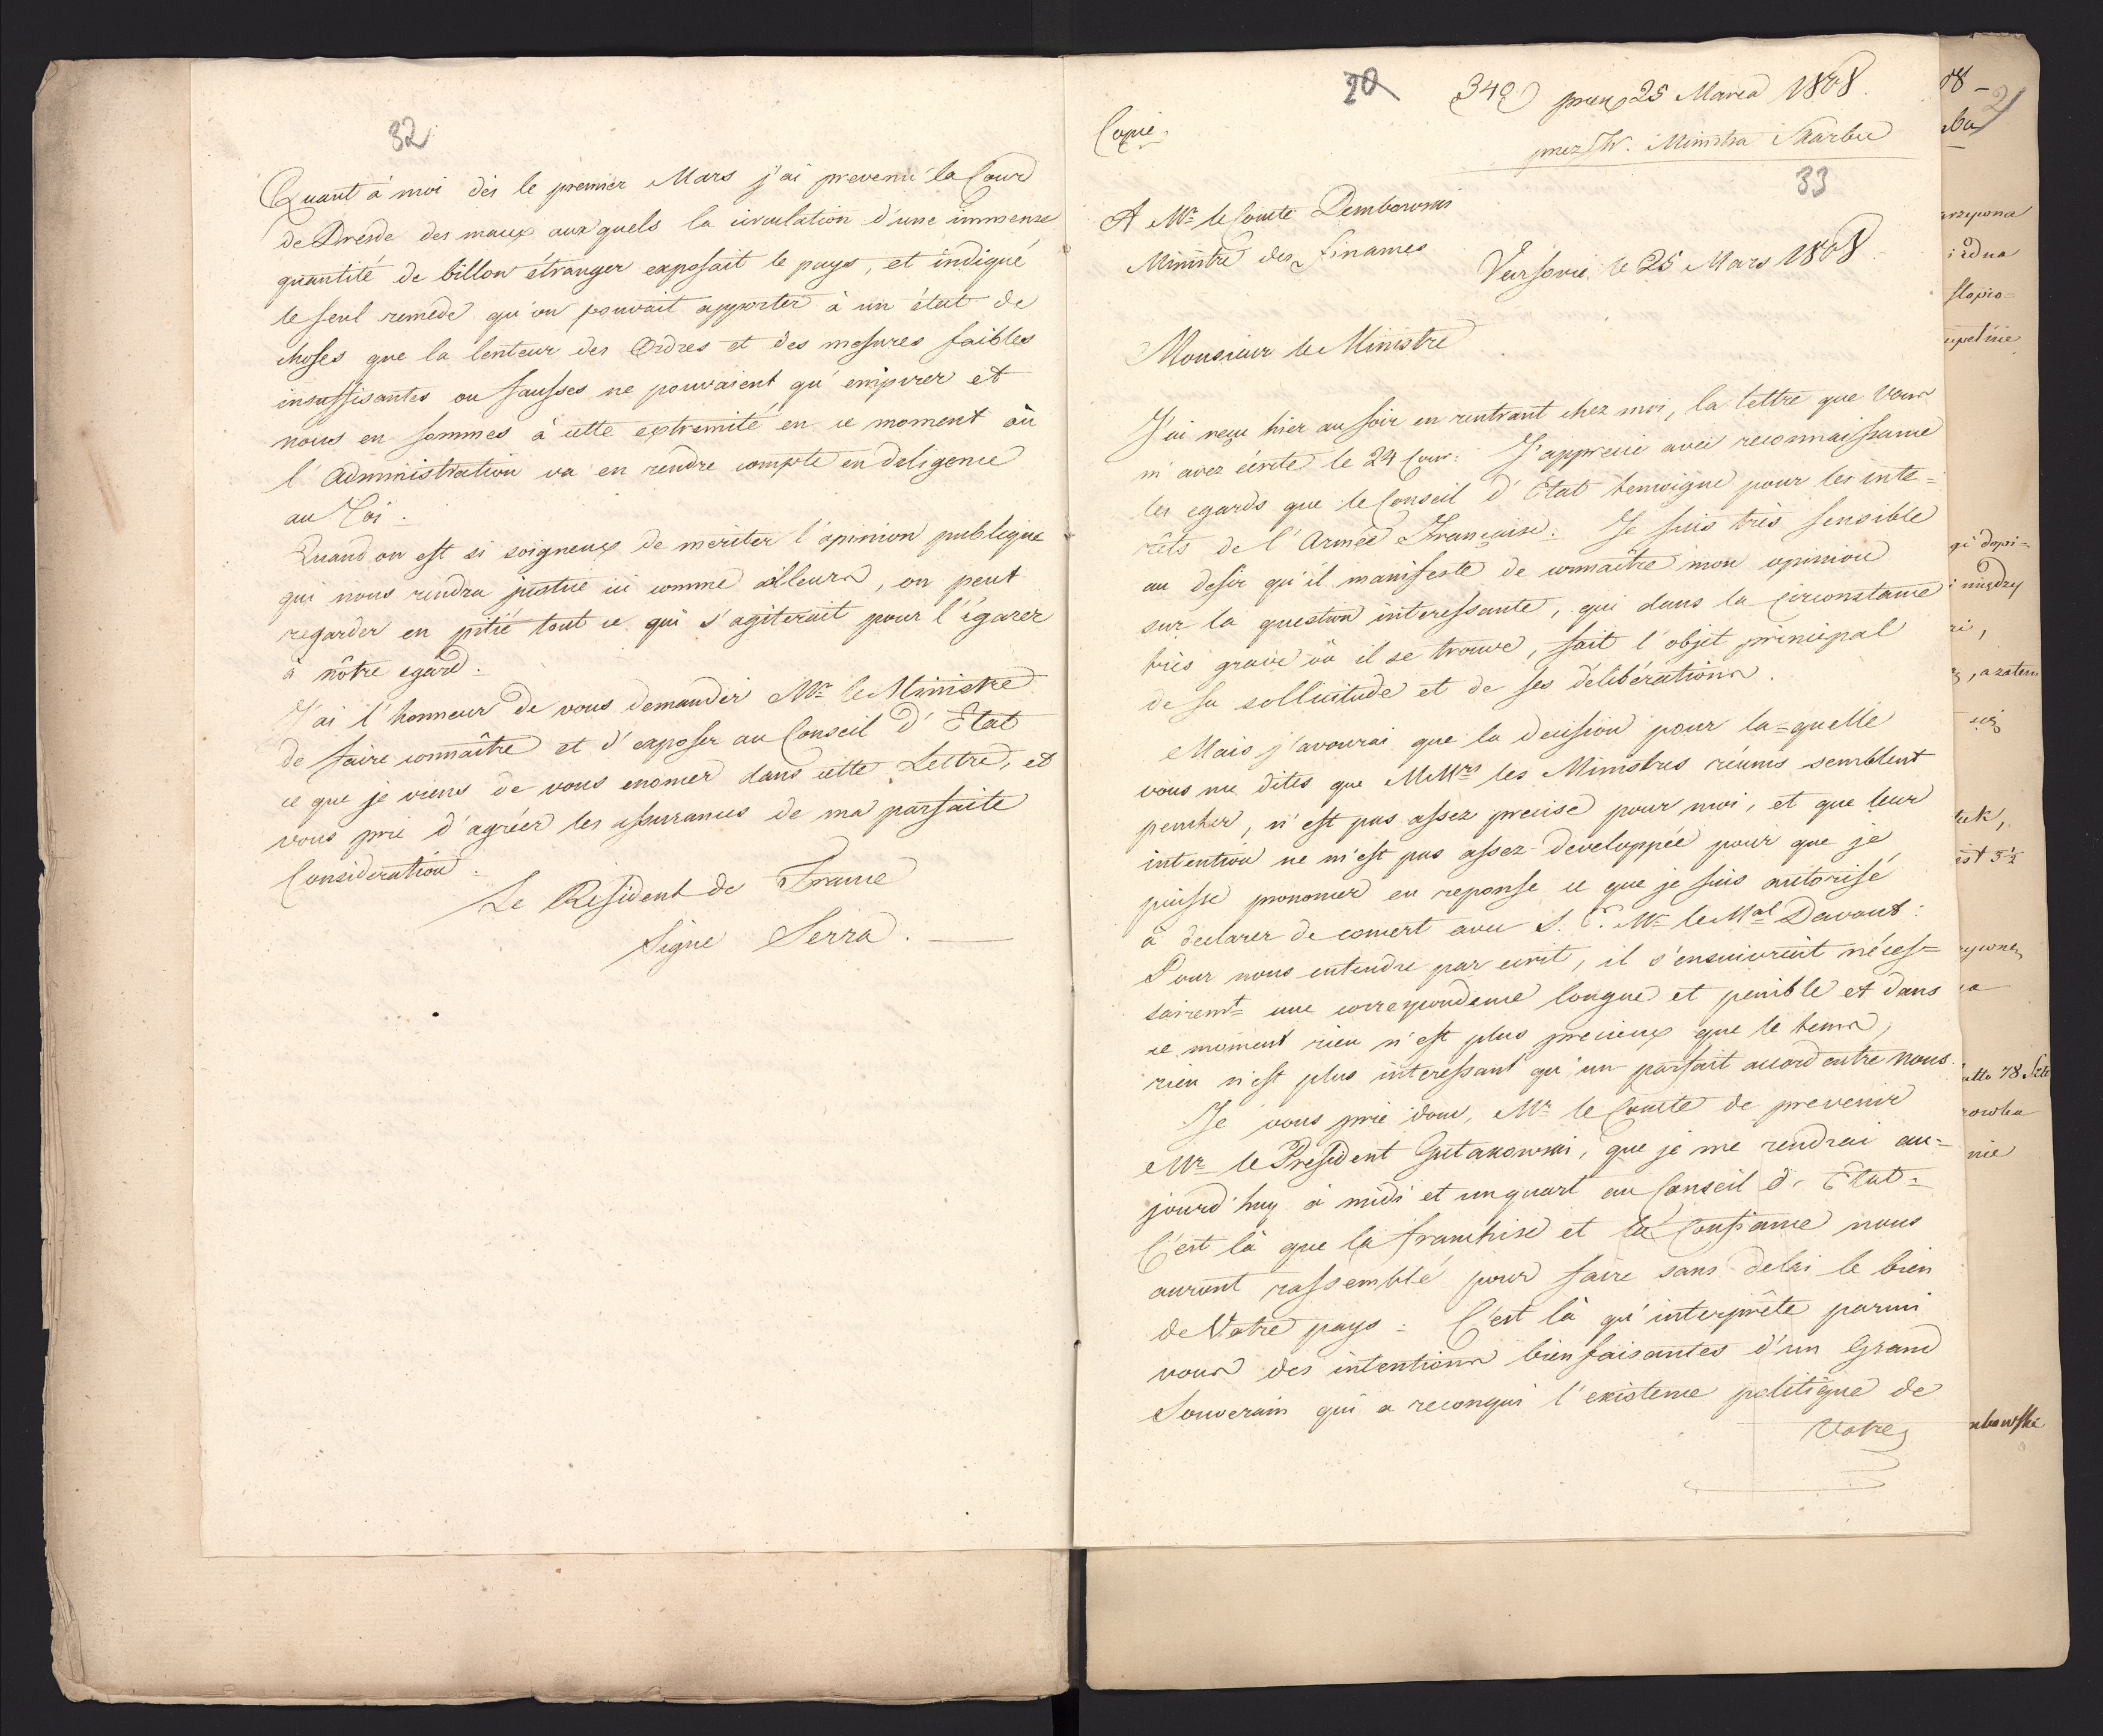 32
Quant à moi dès le premier Mars j'ai prevenu la Cour
de Dresde des maux aux quels la circulation d'une immense
quantité de billon étranger exposait le pays, et indiqué
le seul remede qu'on pouvait apporter à un état de
choses que la lenteur des Ordres et des mesures faibles
insuffisantes ou fausses ne pouvaient qu'empirer et
nous en sommes à cette extremité en ce moment où
l'Administration va en rendre compte en deligence
au Roi.
Quand on est si soigneux de meriter l'opinion publique
qui nous rendra justice ici comme ailleurs, on peut
regarder en pitié tout ce qui s'agiterait pour l'égarer
à nôtre egard.
J'ai l'honneur de vous demander Mr. le Ministre
de faire connaître et d'exposer au Conseil d'Etat
ce que je viens de vous enoncer dans cette Lettre, et
vous prie d'agréer les assurances de ma parfaite
Consideration.
Le Resident de France
Signe Serra.
20 342 prez 25 Marca 1808.
Copie.
przez JW. Ministra Skarbu
33
A Mr. le Comte Dembowski
Ministre des Finances
Varsovie le 25 Mars 1808.
Monsieur le Ministre
J'ai reçu hier au soir en rentrant chez moi, la lettre que Vous
m'avez écrite le 24 Cour: J'apprecie avec reconnaissance
les egards que le Conseil d'Etat temoigne pour les inte=
rêts de l'Armée Française. Je suis très sensible
au desir qu'il manifeste de connaître mon opinion
sur la question interessante, qui dans la Circonstance
très grave où il se trouve, fait l'objet principal
de sa sollicitude et de ses délibérations.
Mais j'avourai que la decision pour la=quelle
vous me dites que MMrs les Ministres réunis semblent
pencher, n'est pas assez precise pour moi, et que leur
intention ne m'est pas assez developpée pour que je
puisse prononcer en reponse ce que je suis autorisé
à declarer de concert avec S. E. Mr. le Mal Davout.
Pour nous entendre par ecrit, il s'ensuivrait néces=
sairemt une correspondance longue et penible et dans
ce moment rien n'est plus precieux que le tems,
rien n'est plus interessant qu'un parfait accord entre nous.
Je vous prie donc, Mr. le Comte de prevenir
Mr. le President Gutakowski, que je me rendrai au=
jourd'huy à midi et unquart au Conseil d'Etat.
C'est là que la franchise et la Confiance nous
auront rassemblé pour faire sans delai le bien
de Votre pays. C'est là qu'interprête parmi
vous des intentions bienfaisantes d'un Grand
Souverain qui a reconquis l'existence politique de
Votre